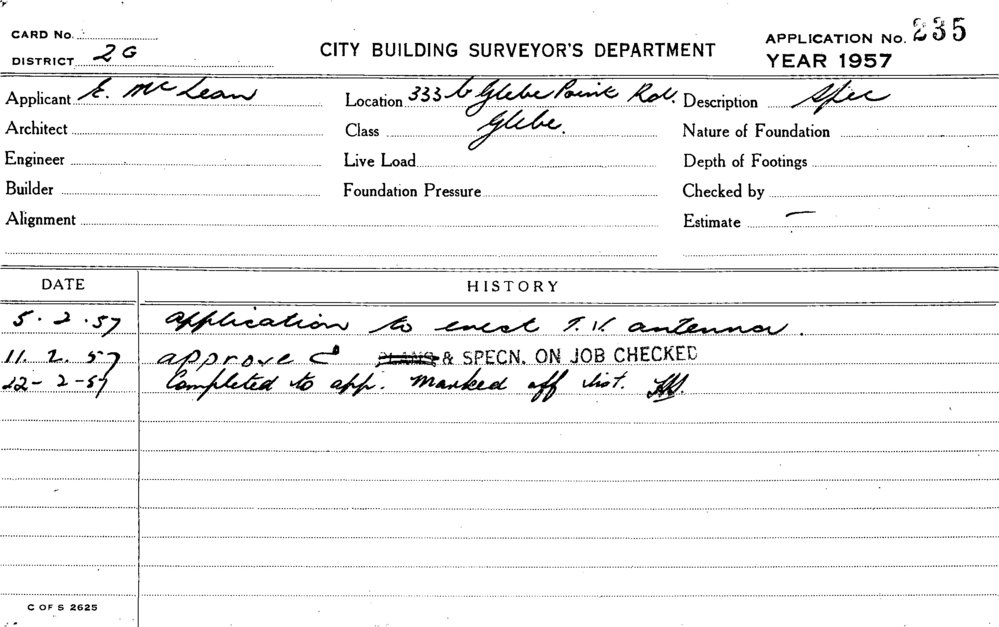 CARD No.
DISTRICT 2G
CITY BUILDING SURVEYOR'S DEPARTMENT
APPLICATION No. 235
YEAR 1957
Applicant E. McLean
Location 333b Glebe Point Rd.
Description Spec
Architect
Class Glebe.
Nature of Foundation
Engineer
Live Load
Depth of Footings
Builder
Foundation Pressure
Checked by
Alignment
Estimate —
DATE HISTORY
5.2.57 application to erect T.V. antenna.
11.2.57 approved PLANS & SPECN. ON JOB CHECKED
22-2-57 Completed to app. Marked off list.
C OF S 2625